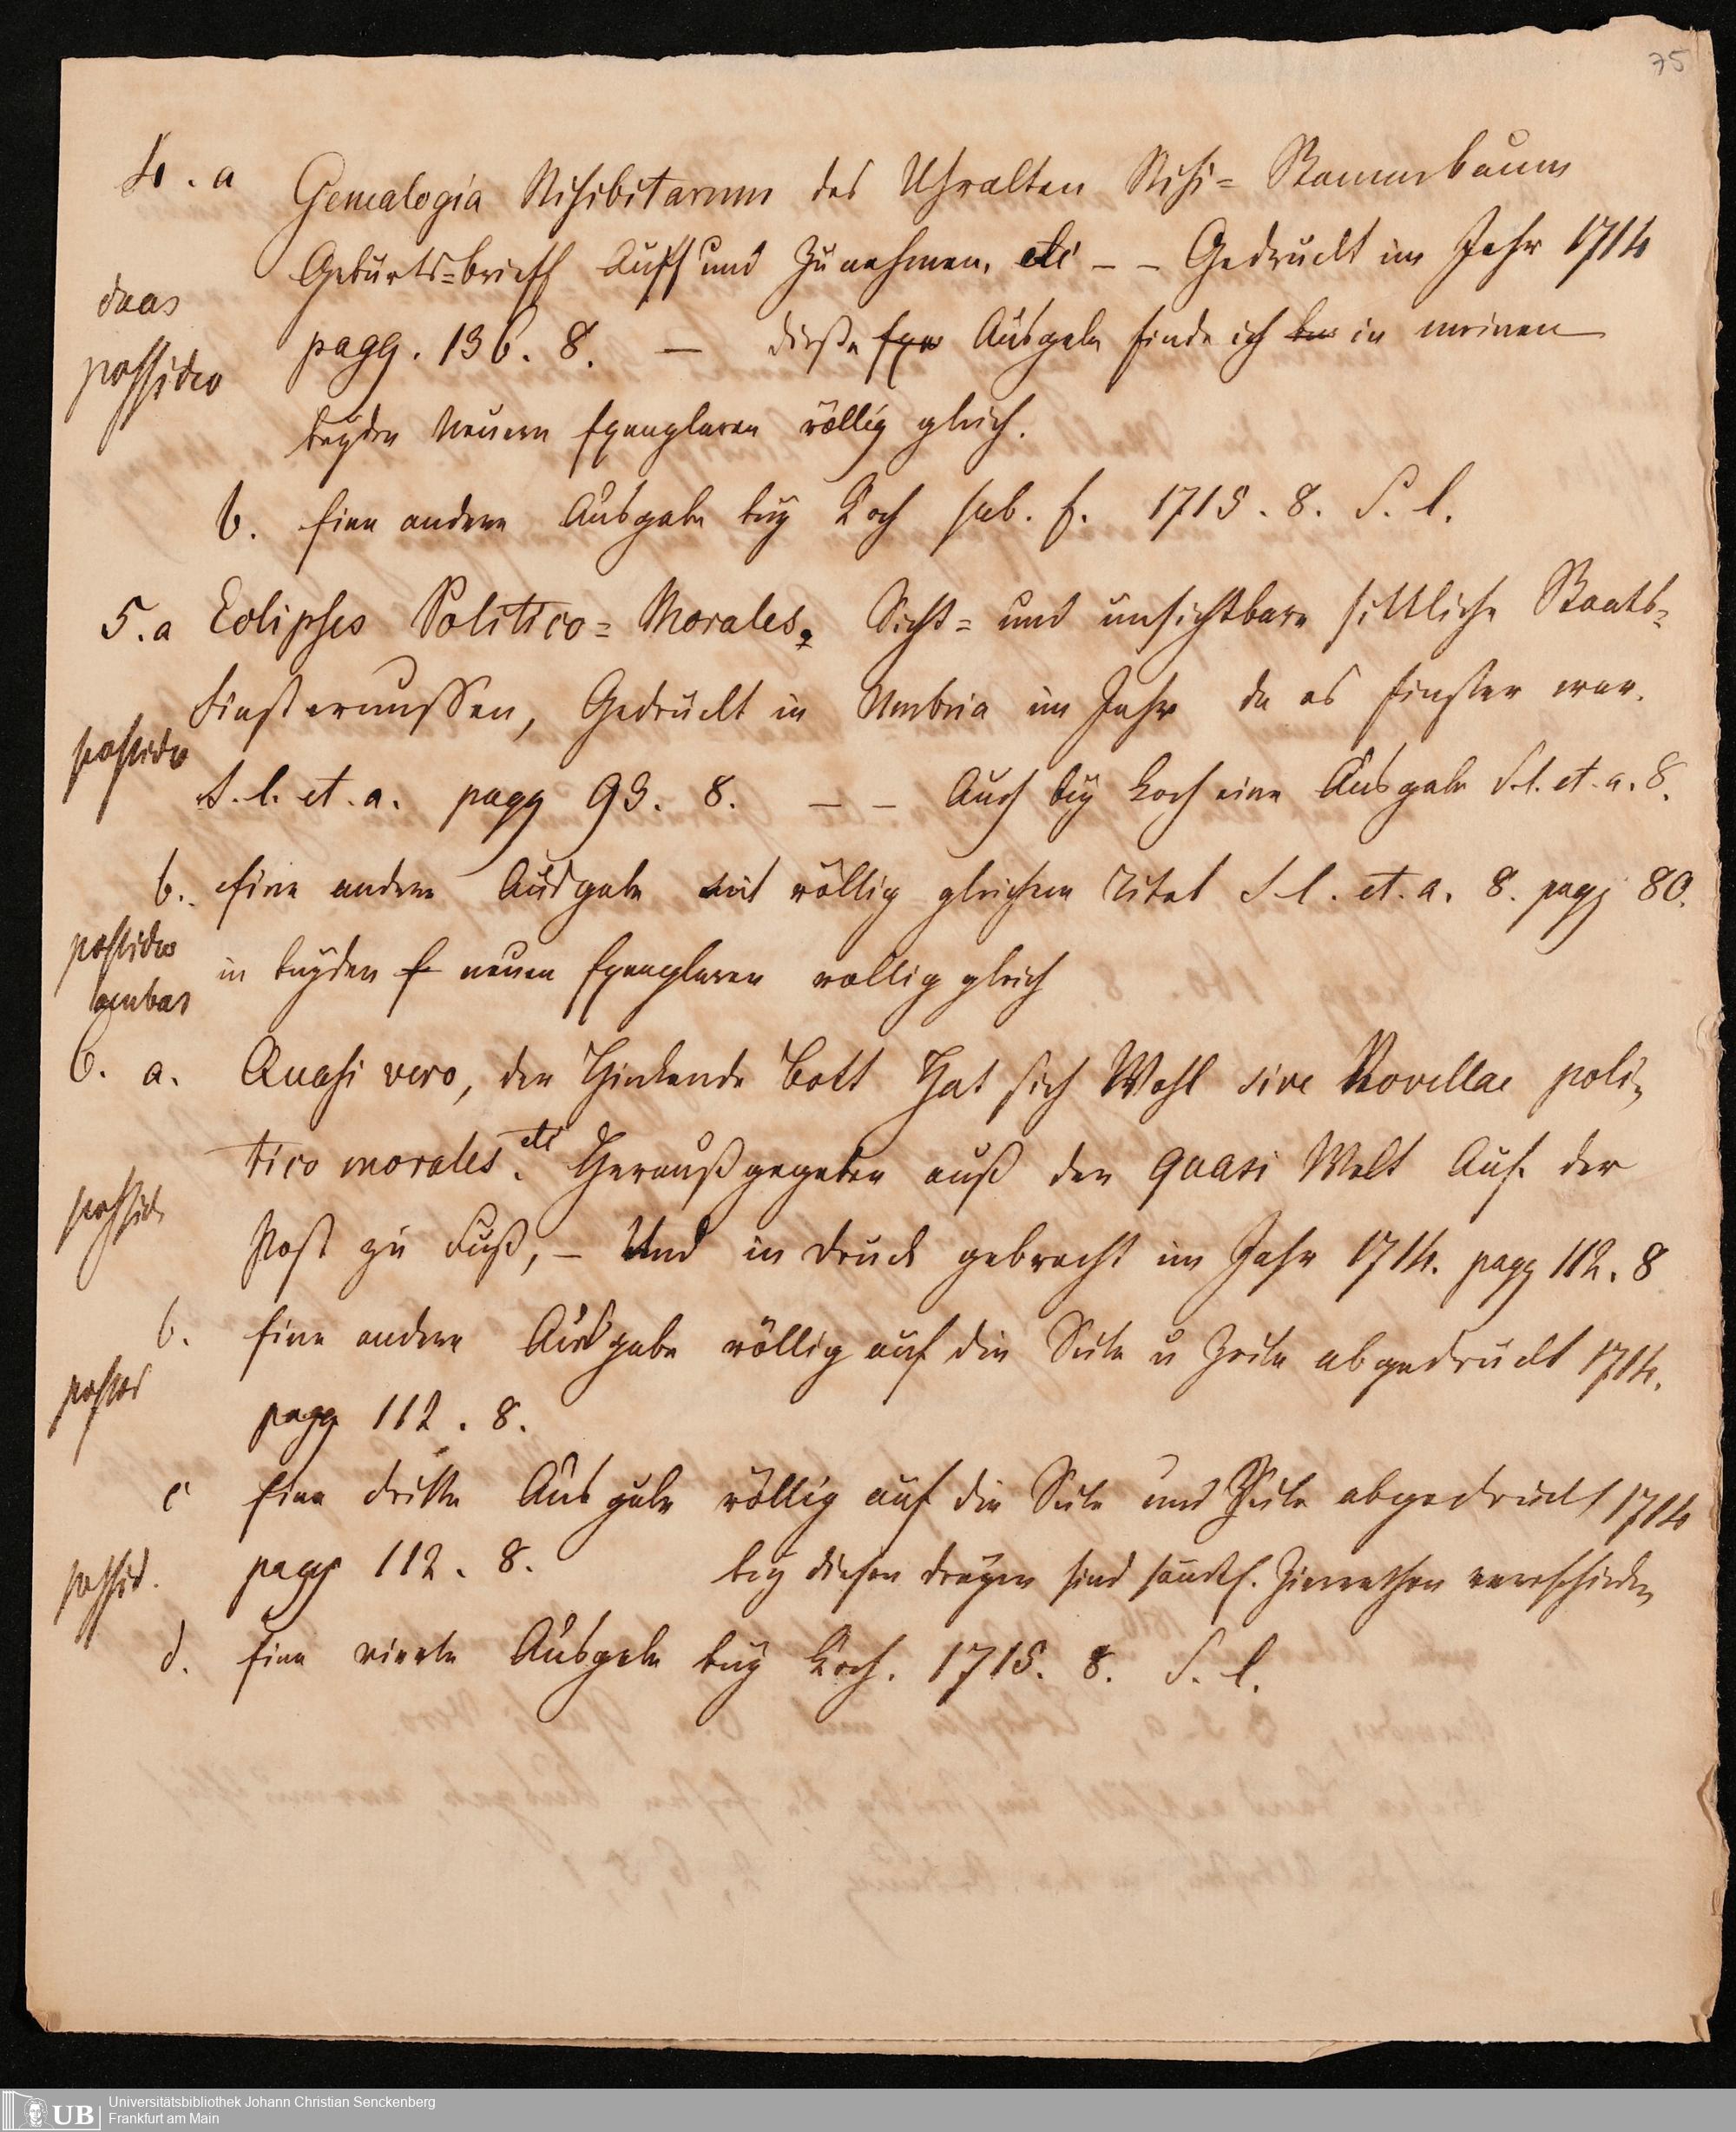 75
4. a Genealogia Nisibitarum des Uhralten Nisi= Stammbaum
Geburts=brieff Auff und Zunehmen, etc – – Gedruckt im Jahr 1714
duas
possideo
pagg. 136. 8. — diese Exe Ausgabe finde ich in meinen
beyden neuern Exemplaren völlig gleich.
b. Eine andere Ausgabe bey Koch sub. f. 1715. 8. S. l.
5. a Eclipses Politico=Morales, Sicht= und unsichtbare sittliche Staats=
Finsternussen, Gedruckt in Umbria im Jahr da es finster war.
possideo
S. l. et. a. pagg 93. 8. – – Auch bey Koch eine Ausgabe S. l. et. a. 8.
b. Eine andere Ausgabe mit völlig gleichem Titel S l. et. a. 8. pagg 80.
possideo
ambas
in beyden E neuen Exemplaren vollig gleich
6. a. Quasi vero, der Hinkende Bott Hat sich Wohl sive Novellae poli=
tico morales. etc Heraußgegeben auß der quasi Welt Auf der
possid.
Post zu Fuß, – Und in druck gebracht im Jahr 1714. pagg 112. 8
b. Eine andere Ausgabe völlig auf die Seite u Zeile abgedruckt 1714.
possid
pagg 112. 8.
c Eine dritte Ausgabe völlig auf die Seite und Zeile abgedruckt 1714
possid.
pagg 112. 8. bey diesen dreyen sind sämtl. Zierrathen verschieden
d. Eine vierte Ausgabe bey Koch. 1715. 8. S. l.
UB
Universitätsbibliothek Johann Christian Senckenberg
Frankfurt am Main